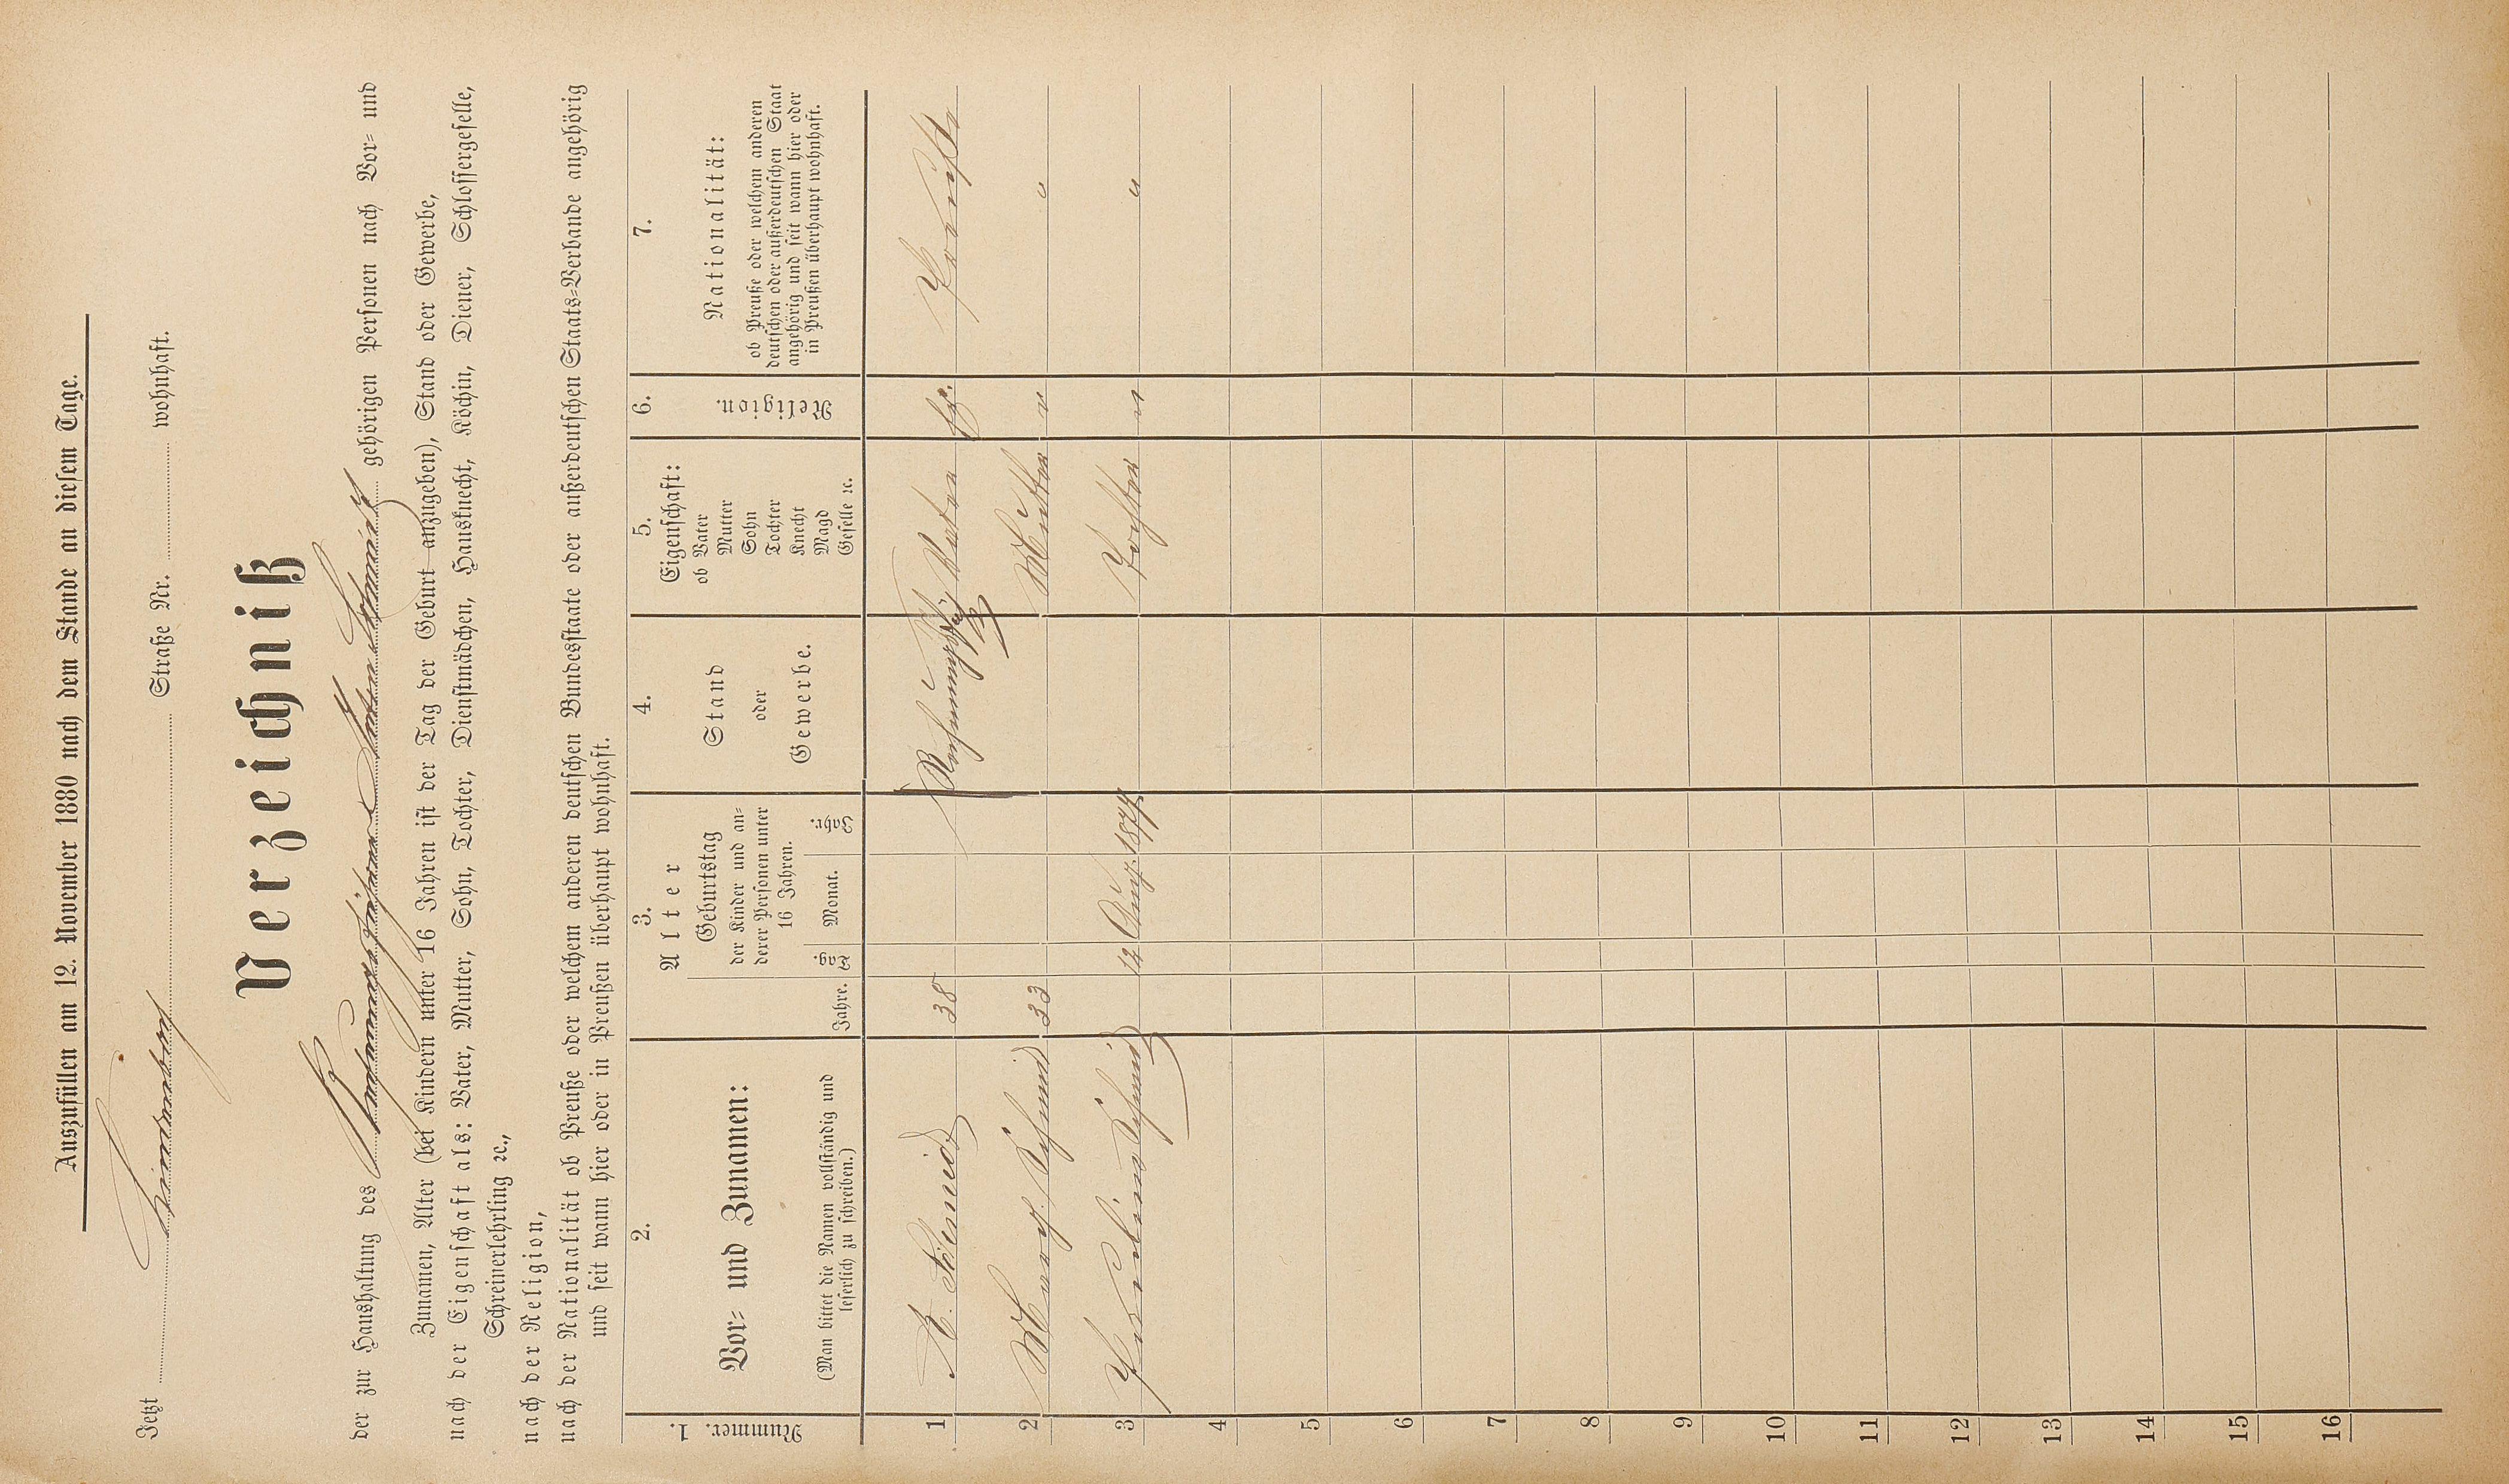 Auszufüllen am 12. November 1880 nach dem Stande an diesem Tage.
Jetzt Straße Nr. wohnhaft.
Verzeichniß
der zur Haushaltung des gehörigen Personen nach Vor- und
Zunamen, Alter (bei Kindern unter 16 Jahren ist der Tag der Geburt anzugeben), Stand oder Gewerbe,
nach der Eigenschaft als: Vater, Mutter, Sohn, Tochter, Dienstmädchen, Hausknecht, Köchin, Diener, Schlossergeselle,
Schreinerlehrling ꝛc.,
nach der Religion,
nach der Nationalität ob Preuße oder welchem anderen deutschen Bundesstaate oder außerdeutschen Staats-Verbande angehörig
und seit wann hier oder in Preußen überhaupt wohnhaft.
1.
Nummer.
2.
Vor- und Zunamen:
(Man bittet die Namen vollständig und
leserlich zu schreiben.)
3.
Alter
Jahre.
Geburtstag
der Kinder und an-
derer Personen unter
16 Jahren.
Tag. Monat. Jahr.
4.
Stand
oder
Gewerbe.
5.
Eigenschaft:
ob Vater
Mutter
Sohn
Tochter
Knecht
Magd
Geselle ꝛc.
6.
Religion.
7.
Nationalität:
ob Preuße oder welchem anderen
deutschen oder außerdeutschen Staat
angehörig und seit wann hier oder
in Preußen überhaupt wohnhaft.
1 A. Schmidt 38 Vater Preuße
2 Schmidt 33 Mutter " "
3 Schmidt 12 Aug. 1874 Tochter " "
4
5
6
7
8
9
10
11
12
13
14
15
16